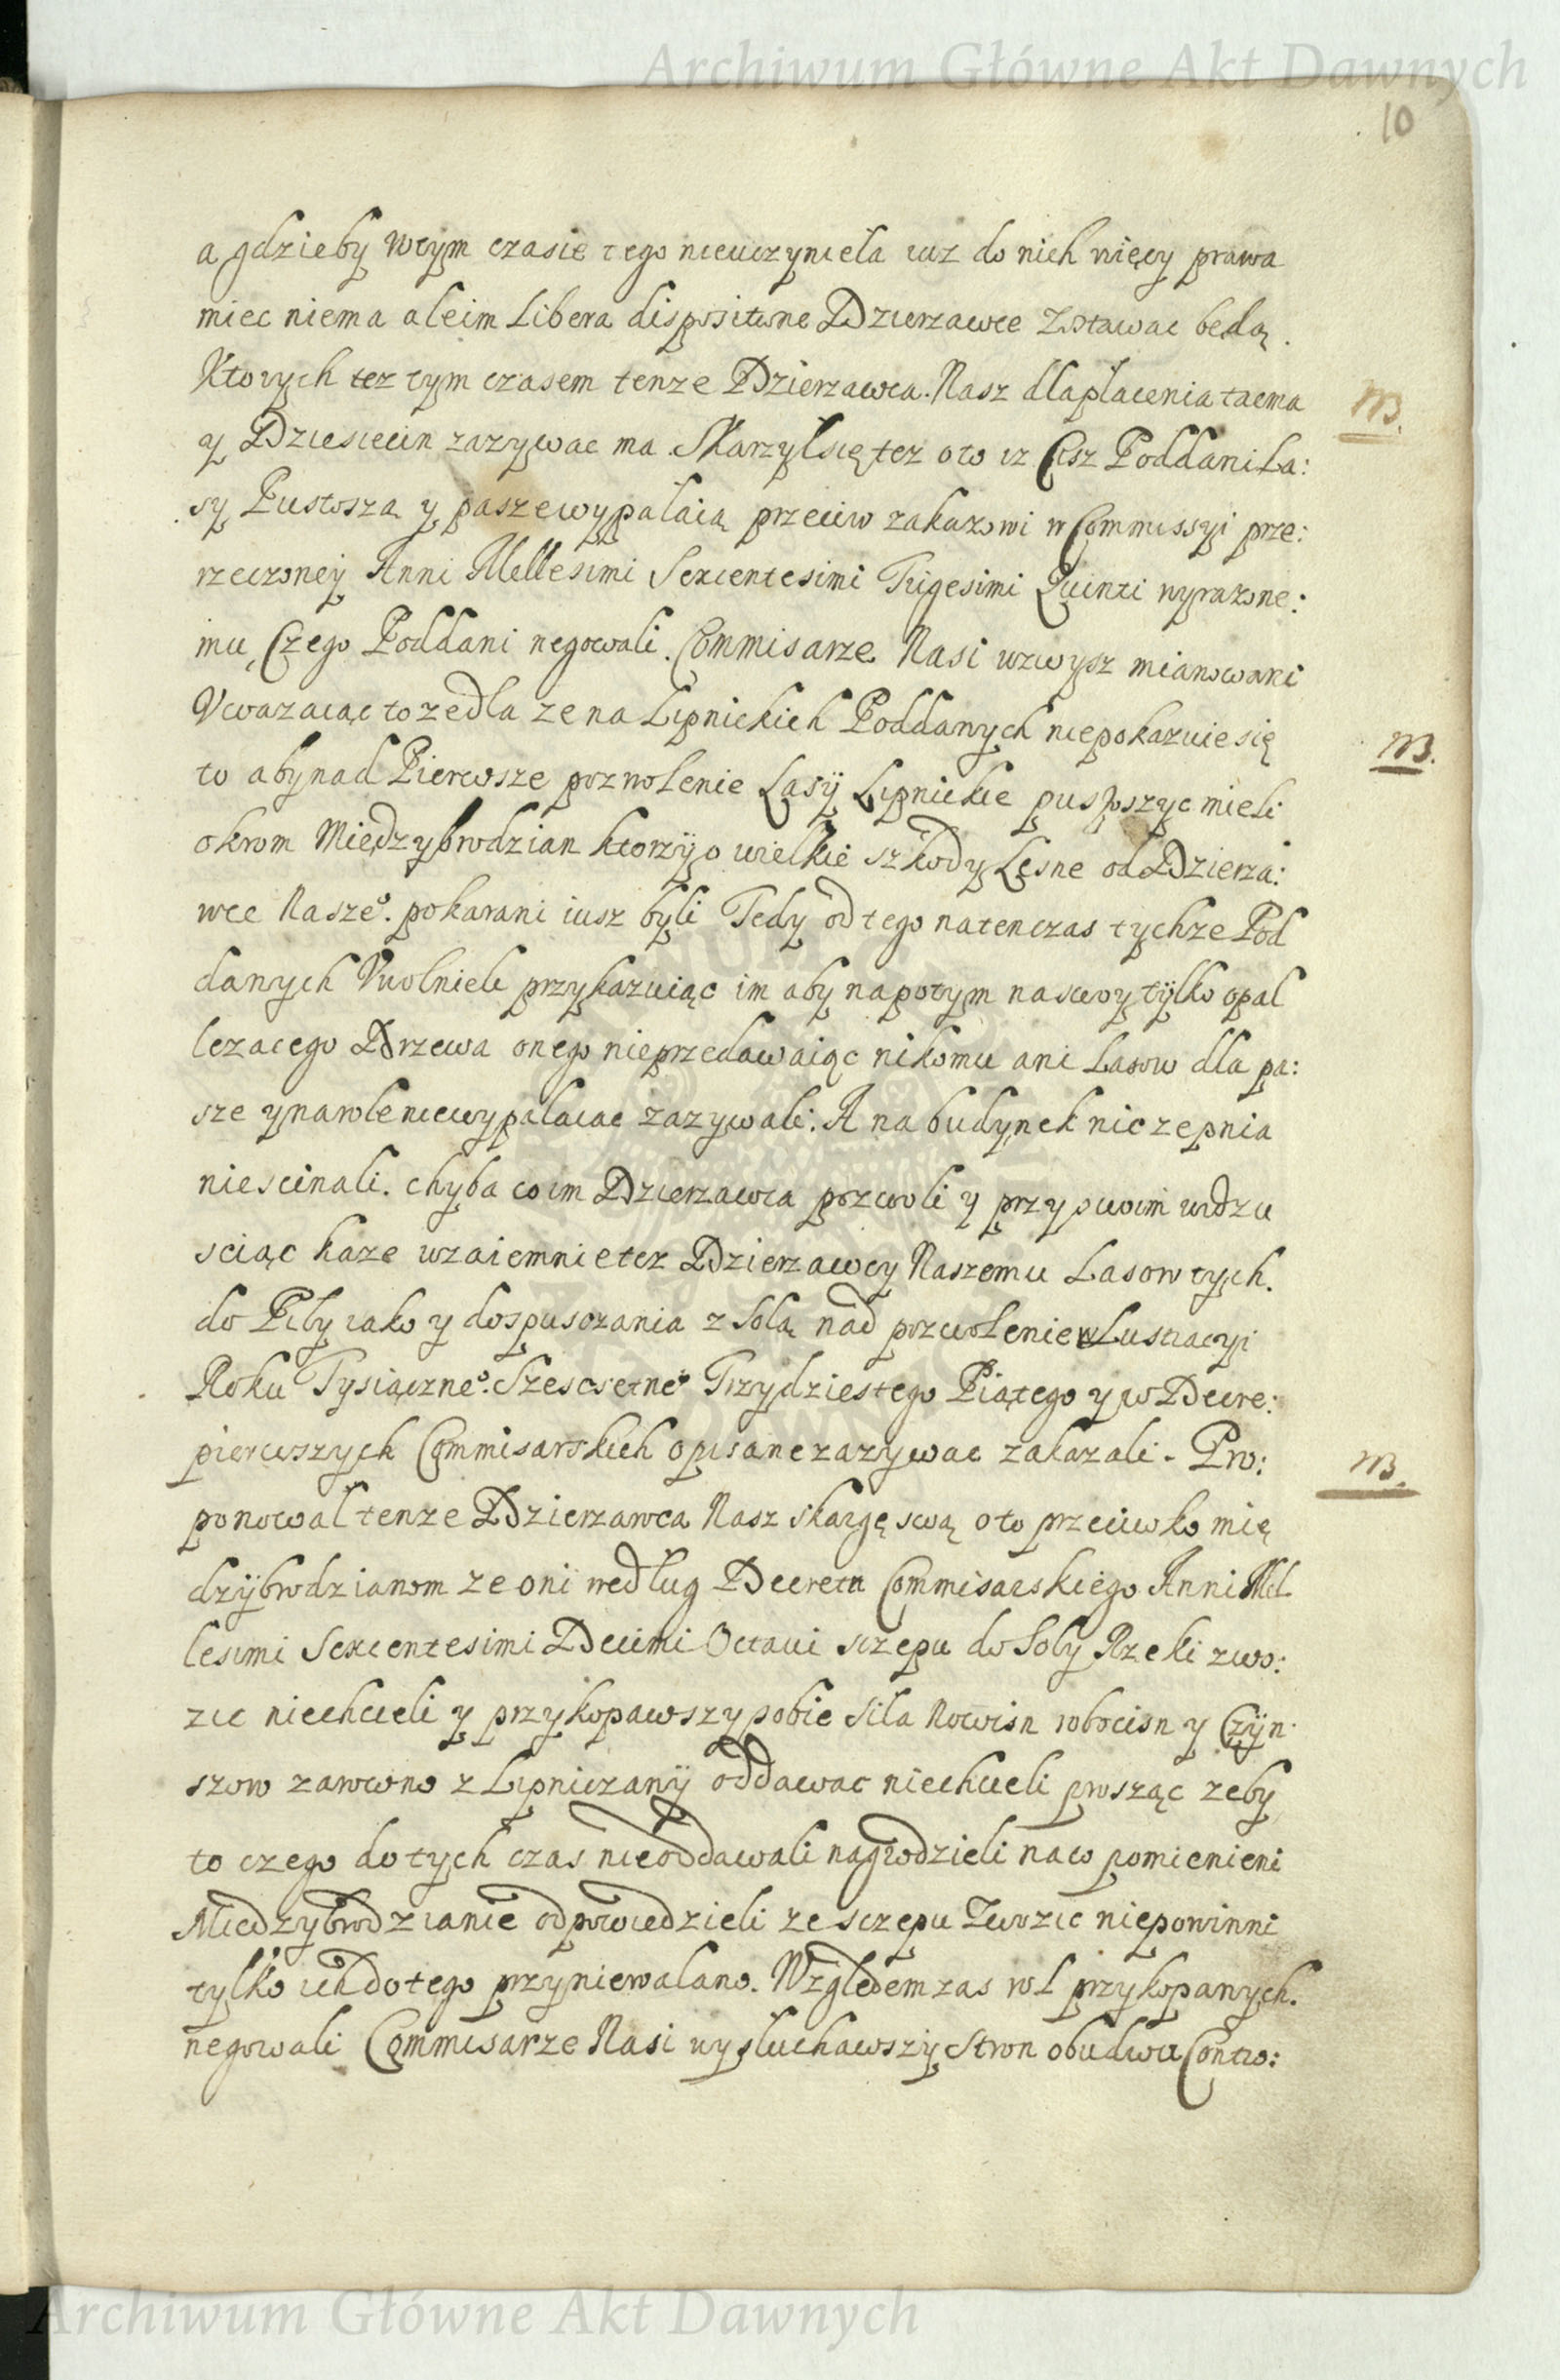 Archiwum Główne Akt Dawnych
10
a gdzieby wtym czasie tego nieuczyniela iuz do nich więcy prawa
miec niema aleim Libera dispositione Dzierzawce Zostawac będą.
Ktorych tez tym czasem tenze Dzierzawca Nasz dla placenia
NB.
y Dziesiecin zazywac ma. Skarzyl się tez oto iz Cisz Poddani La:
sy Pustoszą y paszewypalaią przeciw zakazowi w Commissyi prze:
rzeczoney Anni Millesimi Sexcentesimi Trigesimi Quinti wyrazone:
mu, Czego Poddani negowali. Commisarze Nasi wzwysz mianowani
Uwazaiąc to zedla ze na Lipnickich Poddanych niepokazuie się
NB.
to abynad Pierwsze pozwolenie Lasÿ Lipnickie pustoszyc mieli
okrom Międzybrodzian ktorzÿ o wielkie szkody Lesne od Dzierza:
wce Nasze° pokarani iusz byli Tedy od tego natenczas tychze Pod
danych Uwolnieli przykazuiąc im aby napotym naswoy tÿlko opal
lezacego Drzewa onego nieprzedawaiąc nikomu ani Lasow dla pa:
sze ynarole niewypalaiac zazywali: A na budynek nic zepnia
niescinali. chyba co im Dzierzawca pozwoli y przy swoim urzdzu
sciąc kaze wzaiemnie tez Dzierzawcy Naszemu Lasow tych.
do Pily iako y dospuszczania z Solą nad pozwolenie w Lustracyi
Roku Tysiączne° Szescsetne° Trzydziestego Piątego y w Decre:
pierwszych Commisarskich opisane zazywac zakazali. Pro:
NB.
ponowal tenze Dzierzawca Nasz skargę swą oto przeciwko mię
dzÿbrodzianom ze oni według Decretu Commisarskiego Anni Mil
lesimi Sexcentesimi Decimi Octavi sczepu do Soly Rzeki zwo:
zic niechcieli y przykopawszy sobie sila Nowisn robocisn y Czÿn
szow zarowno z Lipniczanÿ oddawac niechcieli prosząc zeby
to czego do tych czas nieoddawali nagrodzieli naco pomienieni
Miedzybrodzianie odpowiedzieli ze sczepu Zwozic niepowinni
tylko ich do tego przyniewalano. Względem zas rol przykopanych.
negowali Commisarze Nasi wysluchawszÿ Stron obudwu Contro:
Archiwum Główne Akt Dawnych